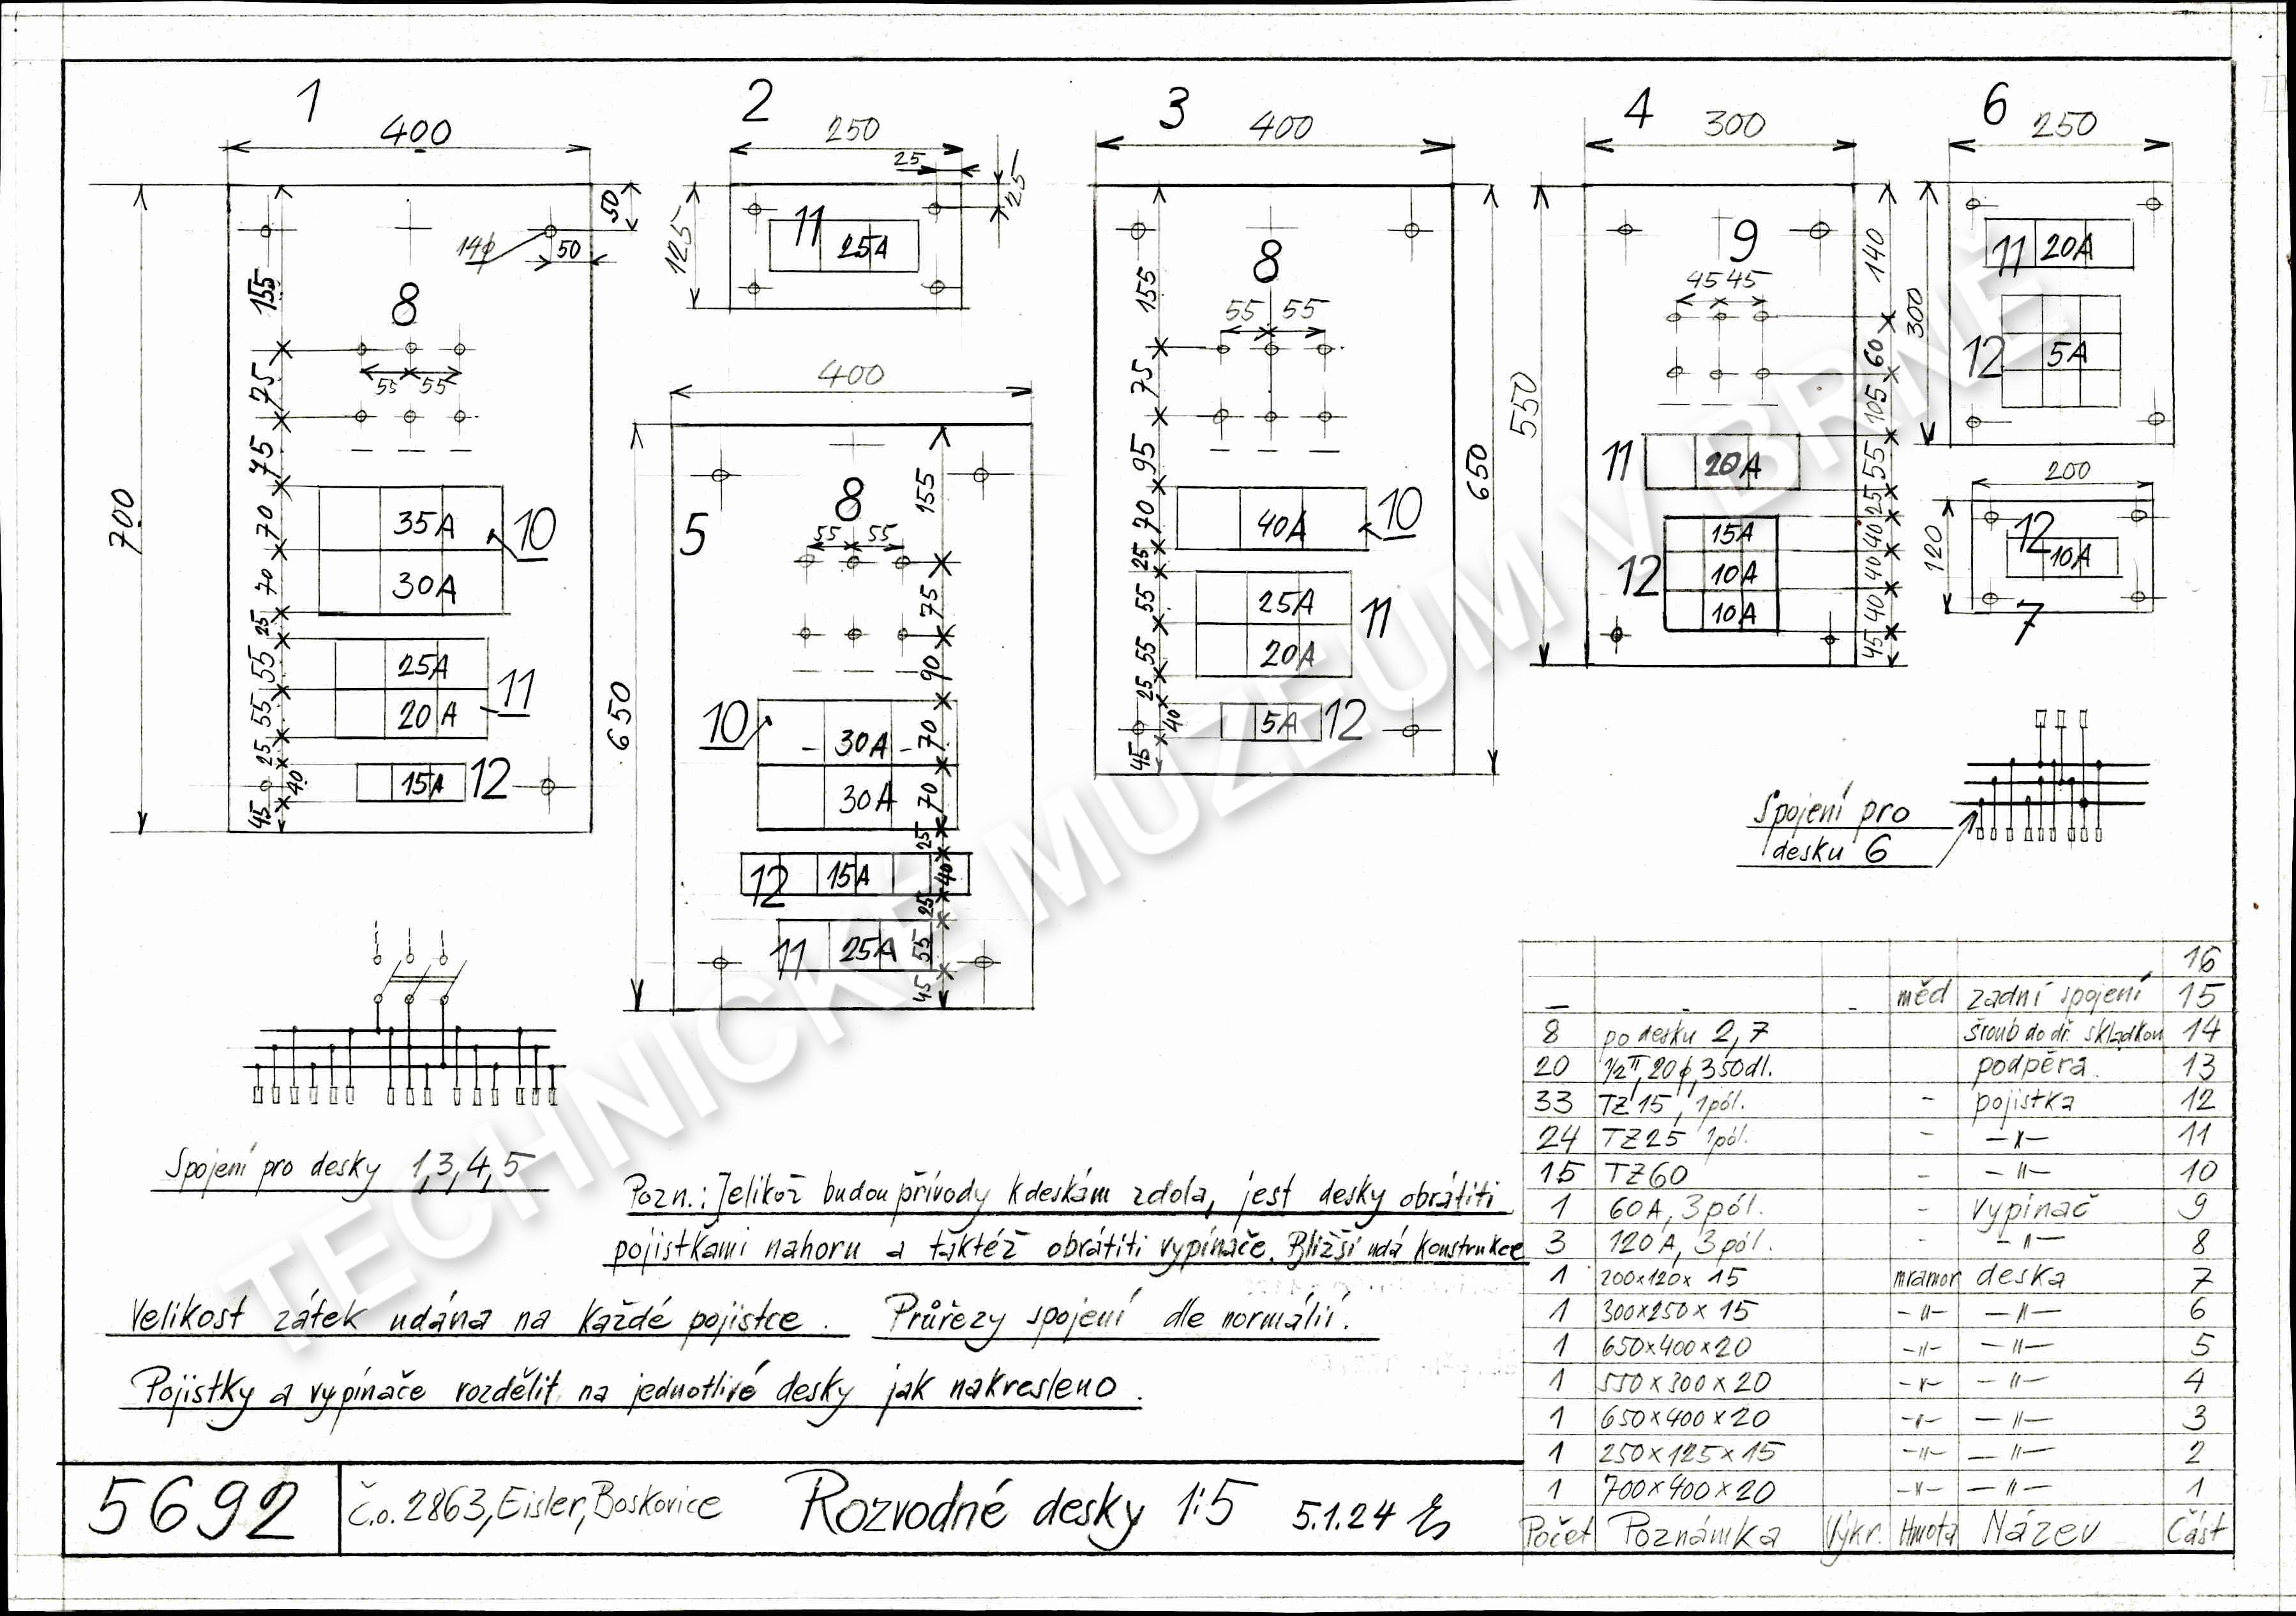 1
400
700
50
50
14ϕ
8
155
75
55 55
75
70
35A
10
70
30A
25
55
25A
11
55
20A
25
15A
12
40
45
2
250
25
25
125
11
25A
400
5
650
8
155
55 55
75
90
10
- 30A -
70
30A
70
25
12
15A
40
25
11
25A
55
45
3
400
8
155
55 55
75
95
650
70
40A
10
25
55
25A
11
55
20A
25
5A
12
40
45
4
300
550
9
140
45 45
60
105
11
20A
55
25
15A
40
12
10A
40
10A
40
45
6
250
300
11
20A
12
5A
200
120
12
10A
7
Spojení pro
desku 6
Spojení pro desky 1,3,4,5
Pozn.: Jelikož budou přívody k deskám zdola, jest desky obrátiti
pojistkami nahoru a taktéž obrátiti vypínače. Bližší udá konstrukce
Velikost zátek udána na každé pojistce. Průřezy spojení dle normálií.
Pojistky a vypínače rozdělit na jednotlivé desky jak nakresleno.
16
– - - měd zadní spojení 15
8 po desku 2, 7 šroub do dř. skladkou 14
20 1/2", 20ϕ, 350dl. podpěra. 13
33 TZ 15, 1pól. - pojistka 12
24 TZ25 1pól. - -"- 11
15 TZ60 - -"- 10
1 60A, 3pól. - vypínač 9
3 120A, 3pól. - -"- 8
1 200x120x 15 mramor deska 7
1 300x250x 15 -"- -"- 6
1 650x400x20 -"- -"- 5
1 550x300x20 -"- -"- 4
1 650x400x20 -"- -"- 3
1 250x125x15 -"- -"- 2
1 700x400x20 -"- -"- 1
Počet Poznámka Výkr. Hmota Název Část
5692
č.o. 2863, Eisler, Boskovice
Rozvodné desky 1:5
5.1.24
TECHNICKÉ MUZEUM V BRNĚ